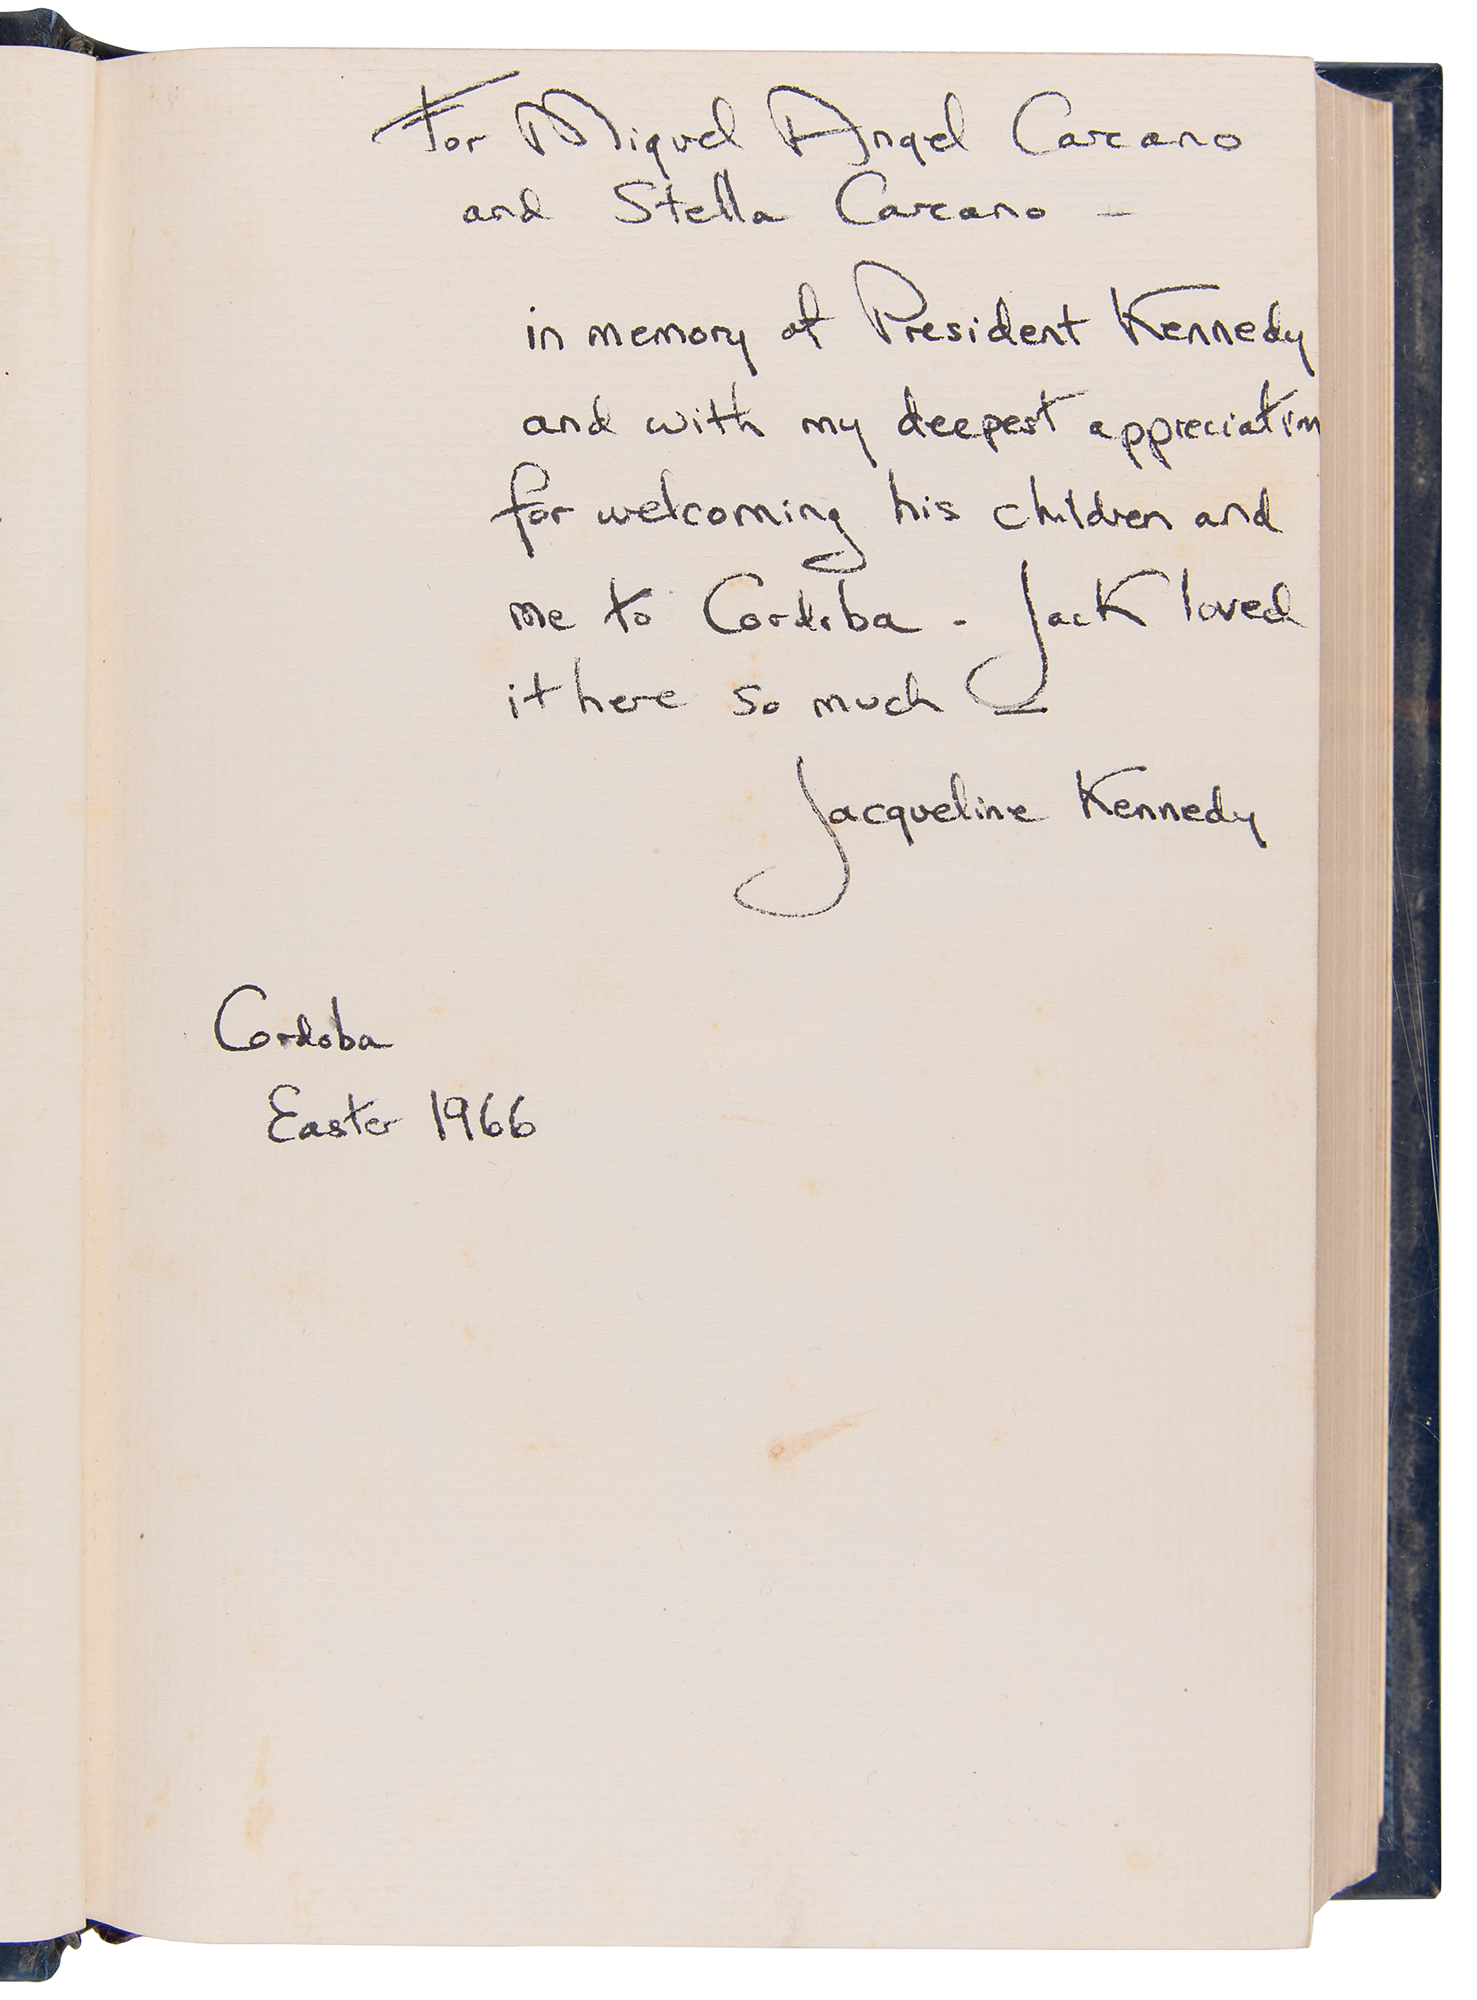 For Miguel Angel Carcano
and Stella Carcano —
in memory of President Kennedy
and with my deepest appreciation
for welcoming his children and
me to Cordoba. Jack loved
it here so much —
Jacqueline Kennedy
Cordoba
Easter 1966